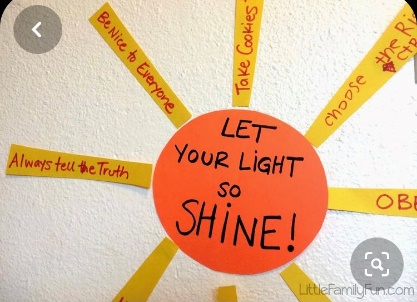 Be Nice to Everyone
Take Cookies
choose the Ri
Always tell the Truth
LET
YOUR LiGHT
so
SHiNE!
OBE
LittleFamilyFun.com